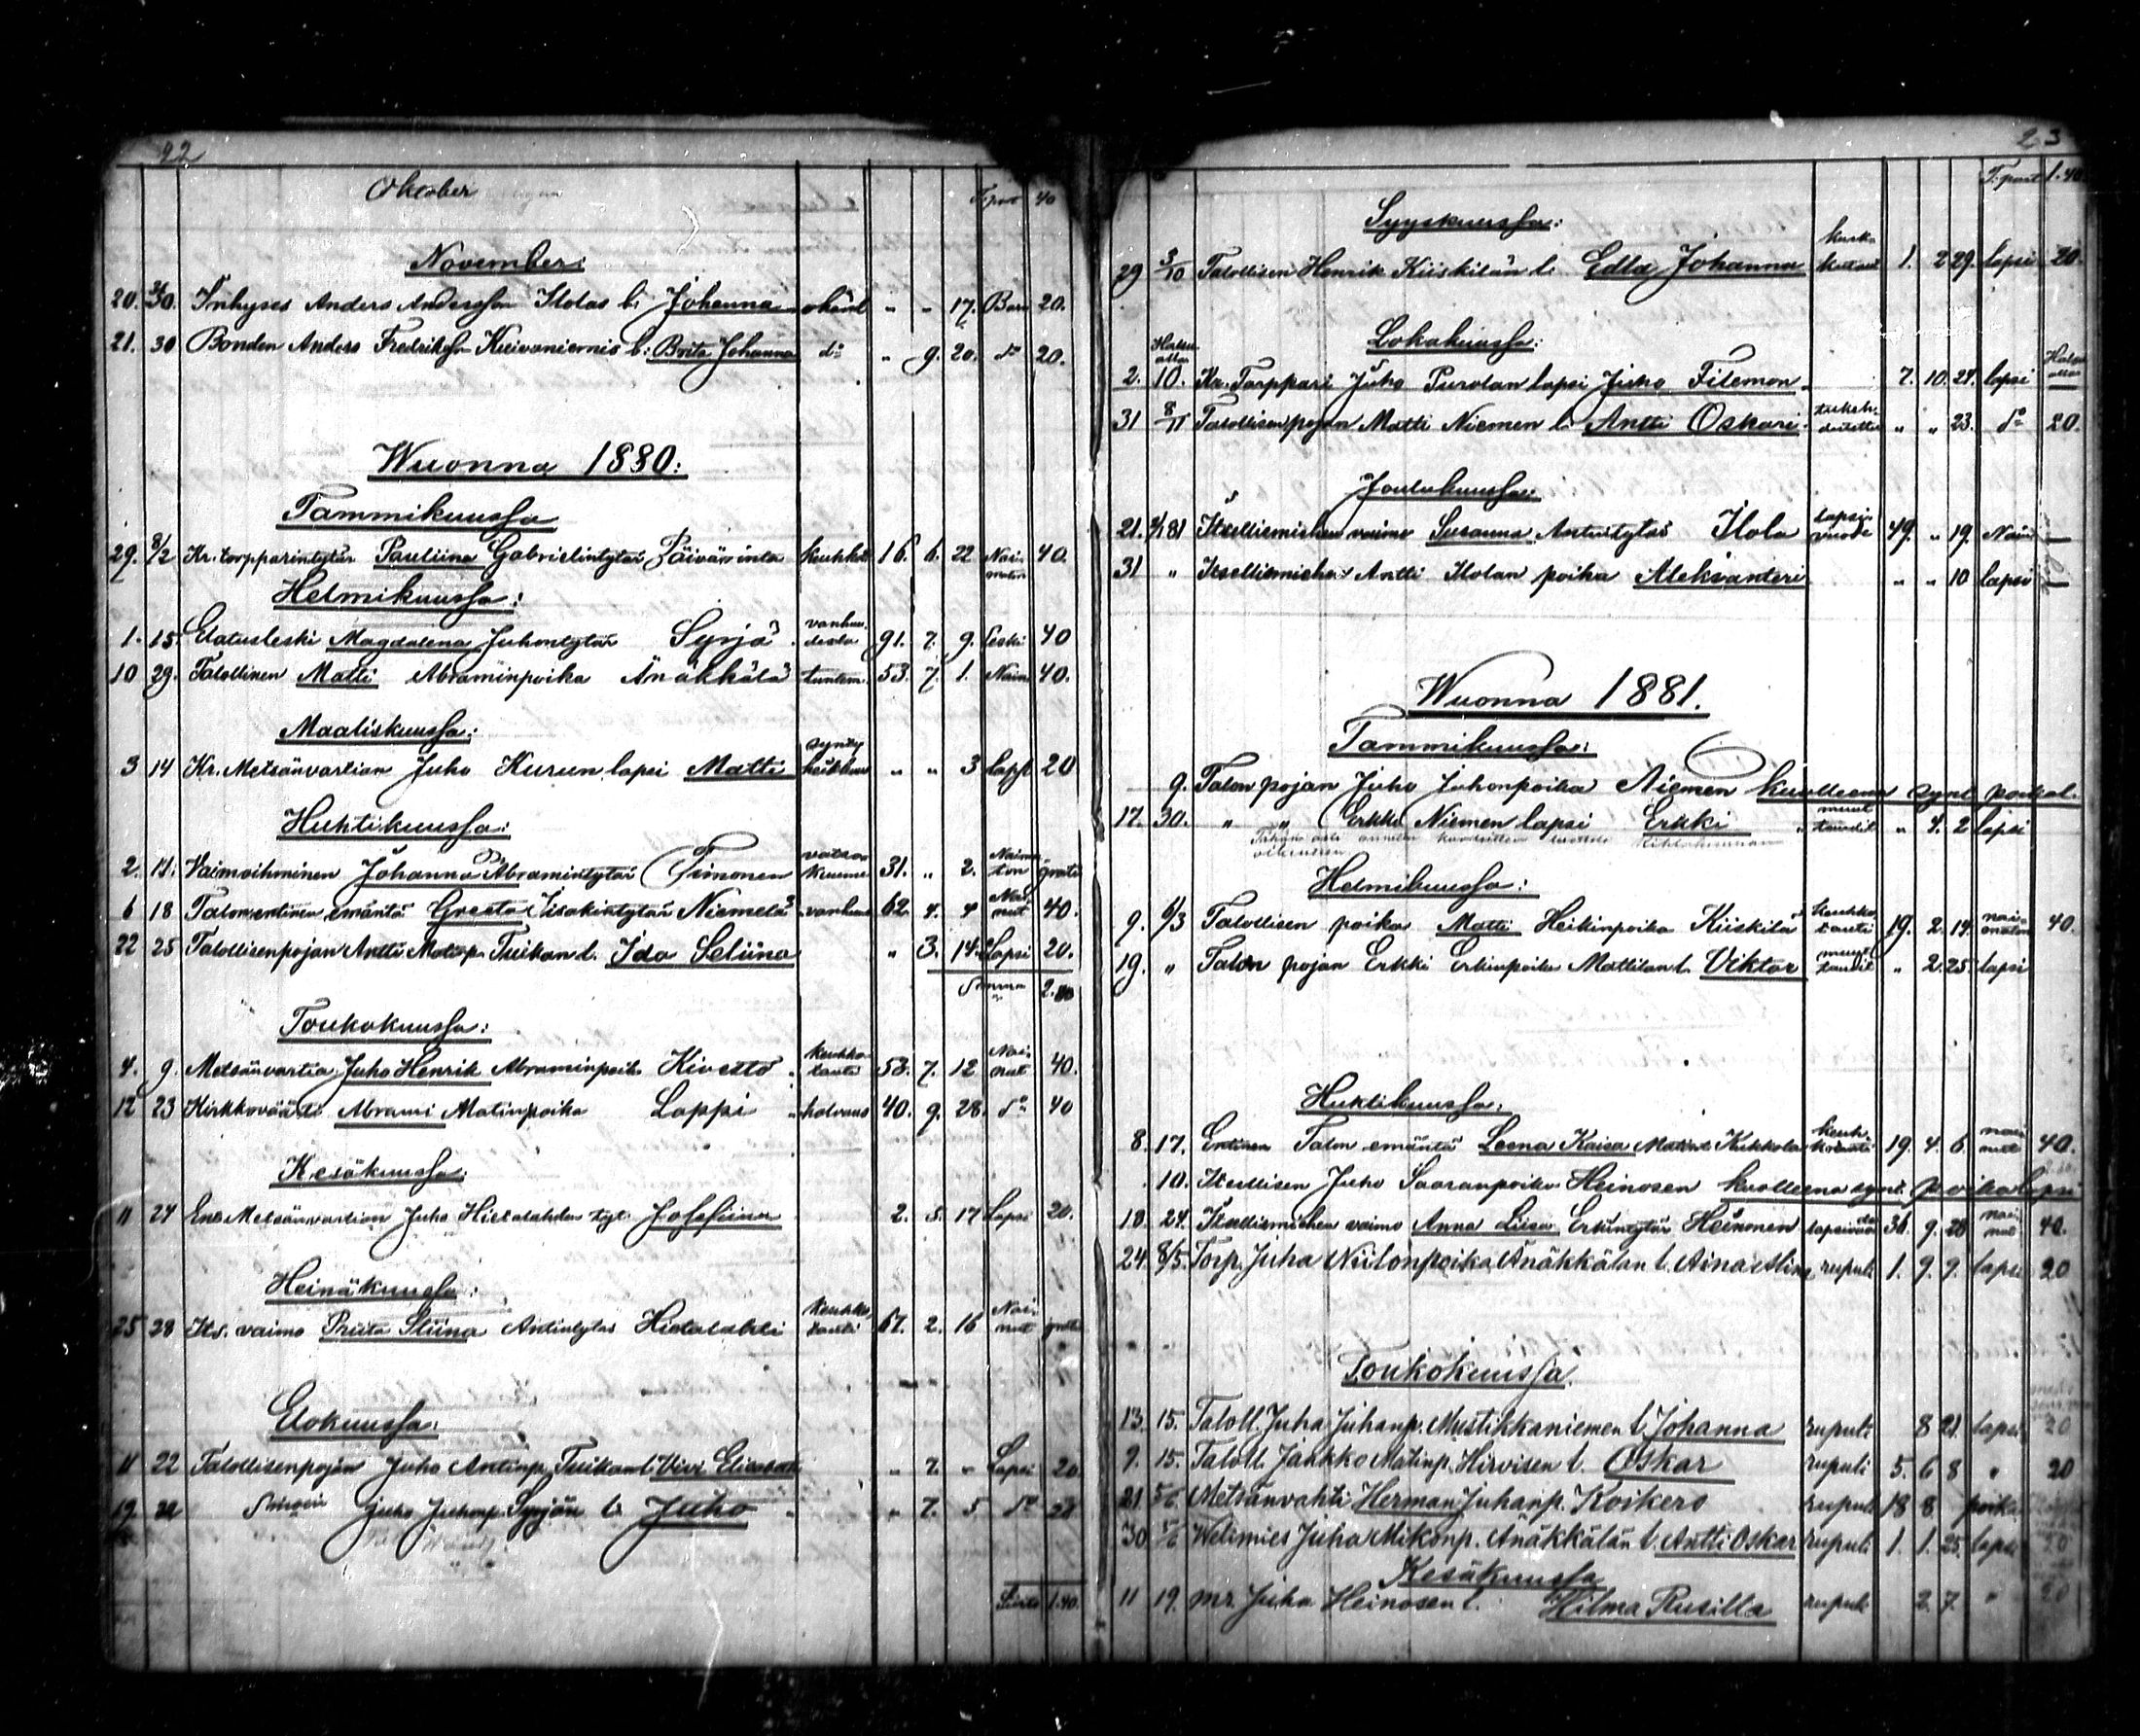 22
Oktober
T. port 40
November:
20. 30. Inhyses Anders Andersson Ilolas b: Johanna okänd " - 17. Barn 20.
21. 30 Bonden Anders Fredriksson Kuivaniemis b: Brita Johanna d:o " 9. 20. d:o 20.
Wuonna 1880:
Tammikuussa
29. 8/2 Kr. torpparintytär Pauliina Gabrielintytär Päivärinta keuhkot 16. 6. 22 Naimaton 40.
Helmikuussa:
1. 15. Elatusleski Magdalena Juhontytär Syrjä vanhuudesta 91. 7. 9. Leski 40
10 29. Talollinen Matti Abraminpoika Änäkkälä tuntem. 53. 7. 1. Nain. 40.
Maaliskuussa:
3 14 Kr. Metsänvartian Juho Kurun lapsi Matti " " 3 Lapsi 20
Huhtikuussa:
2. 11. Vaimoihminen Johanna Abramintytär Timonen vatsakuume 31. " 2. Naimaton gratis
6 18 Talon entinen emäntä Greeta Iisakintytär Niemelä vanhuus 62. 4. 4 Nainut 40.
22 25 Talollisenpojan Antti Matinp. Tuikan l. Ida Seliina " 3. 14. Lapsi 20.
Summa 2.00
Toukokuussa:
4. 9. Metsänvartia Juho Henrik Abraminpoik. Kivestö keuhkotauti 53. 7. 12 Nainut 40.
12 23 Kirkkoväärti Abrami Matinpoika Lappi halvaus 40. 9. 28. d:o 40
Kesäkuussa:
11 24 Ent. Metsänvartian Juho Hietalahden tyt. Josefiina 2. 5. 17 Lapsi 20.
Heinäkuussa:
25 28 Its. vaimo Priita Stiina Antintytär Hietalahti keuhkotauti 67. 2. 16 Nainut gratis
Elokuussa:
11 22 Talollisenpojan Juho Antinp. Tuikan l: Vivi Elisabet " 7. " Lapsi 20
19. 22 Juho Juhonp. Syrjän l: Juho " 7. 5 d:o 20
Siirto 1.40.
23
T. port 1.40.
Syyskuussa:
29 3/10 Talollisen Henrik Kiiskilän l: Edla Johanna 1. 2 29. lapsi 20.
Lokakuussa:
2. 10. Kr. Torppari Juho Purolan lapsi Juho Filemon 7. 10. 24. lapsi
31 8/11 Talollisenpojan Matti Niemen l: Antti Oskari " " 23. d:o 20.
Joulukuussa:
21. 81 Itsellismiehen vaimo Susanna Antintytär Ilola lapsivuode 49. " 19. Nain
31 " Itsellismiehen Antti Ilolan poika Aleksanteri " " 10 lapsi
Wuonna 1881.
Tammikuussa:
9. Talon pojan Juho Juhonpoika Niemen kuolleena synt. poikal.
17. 30. " " Erkki Niemen lapsi Erkki muut taudit " 4. 2 lapsi
Helmikuussa:
9. 6/3 Talollisen poika Matti Heikinpoika Kiiskilä keuhkotauti 19. 2. 14. naimaton 40.
19. " Talon pojan Erkki Erkinpoika Mattilan l. Viktor muut taudit " 2. 25. lapsi
Huhtikuussa:
8. 17. Entinen Talon emäntä Leena Kaisa Matint. Kukkola keuhkotauti 19. 4. 6. nainut 40.
10. Itsellisen Juho Saaranpoika Heinosen kuolleena synt. poikalapsi
18. 24. Itsellismiehen vaimo Anna Liisa Erkintytär Heinonen lapsivuode 36. 9. 28 nainut 40.
24. 8/5. Torp. Juha Niilonpoika Änäkkälän l. Aina Alina rupuli 1. 9. 9. lapsi 20
Toukokuussa
13. 15. Taloll. Juha Juhanp. Mustikkaniemen l. Johanna rupuli 8 21. lapsi 20
9. 15. Taloll. Jaakko Matinp. Hirvisen l. Oskar rupuli 5. 6 8 " 20
21. 5/6 Metsänvahti Herman Juhanp. Koikero rupuli 18 8. poika
30. 5/6 Welimies Juha Mikonp. Änäkkälän l. Antti Oskar rupuli 1. 1. 25. lapsi 20
Kesäkuussa
11 19. mr. Juha Heinosen l. Hilma Rusilla rupuli 2. 7. " 20